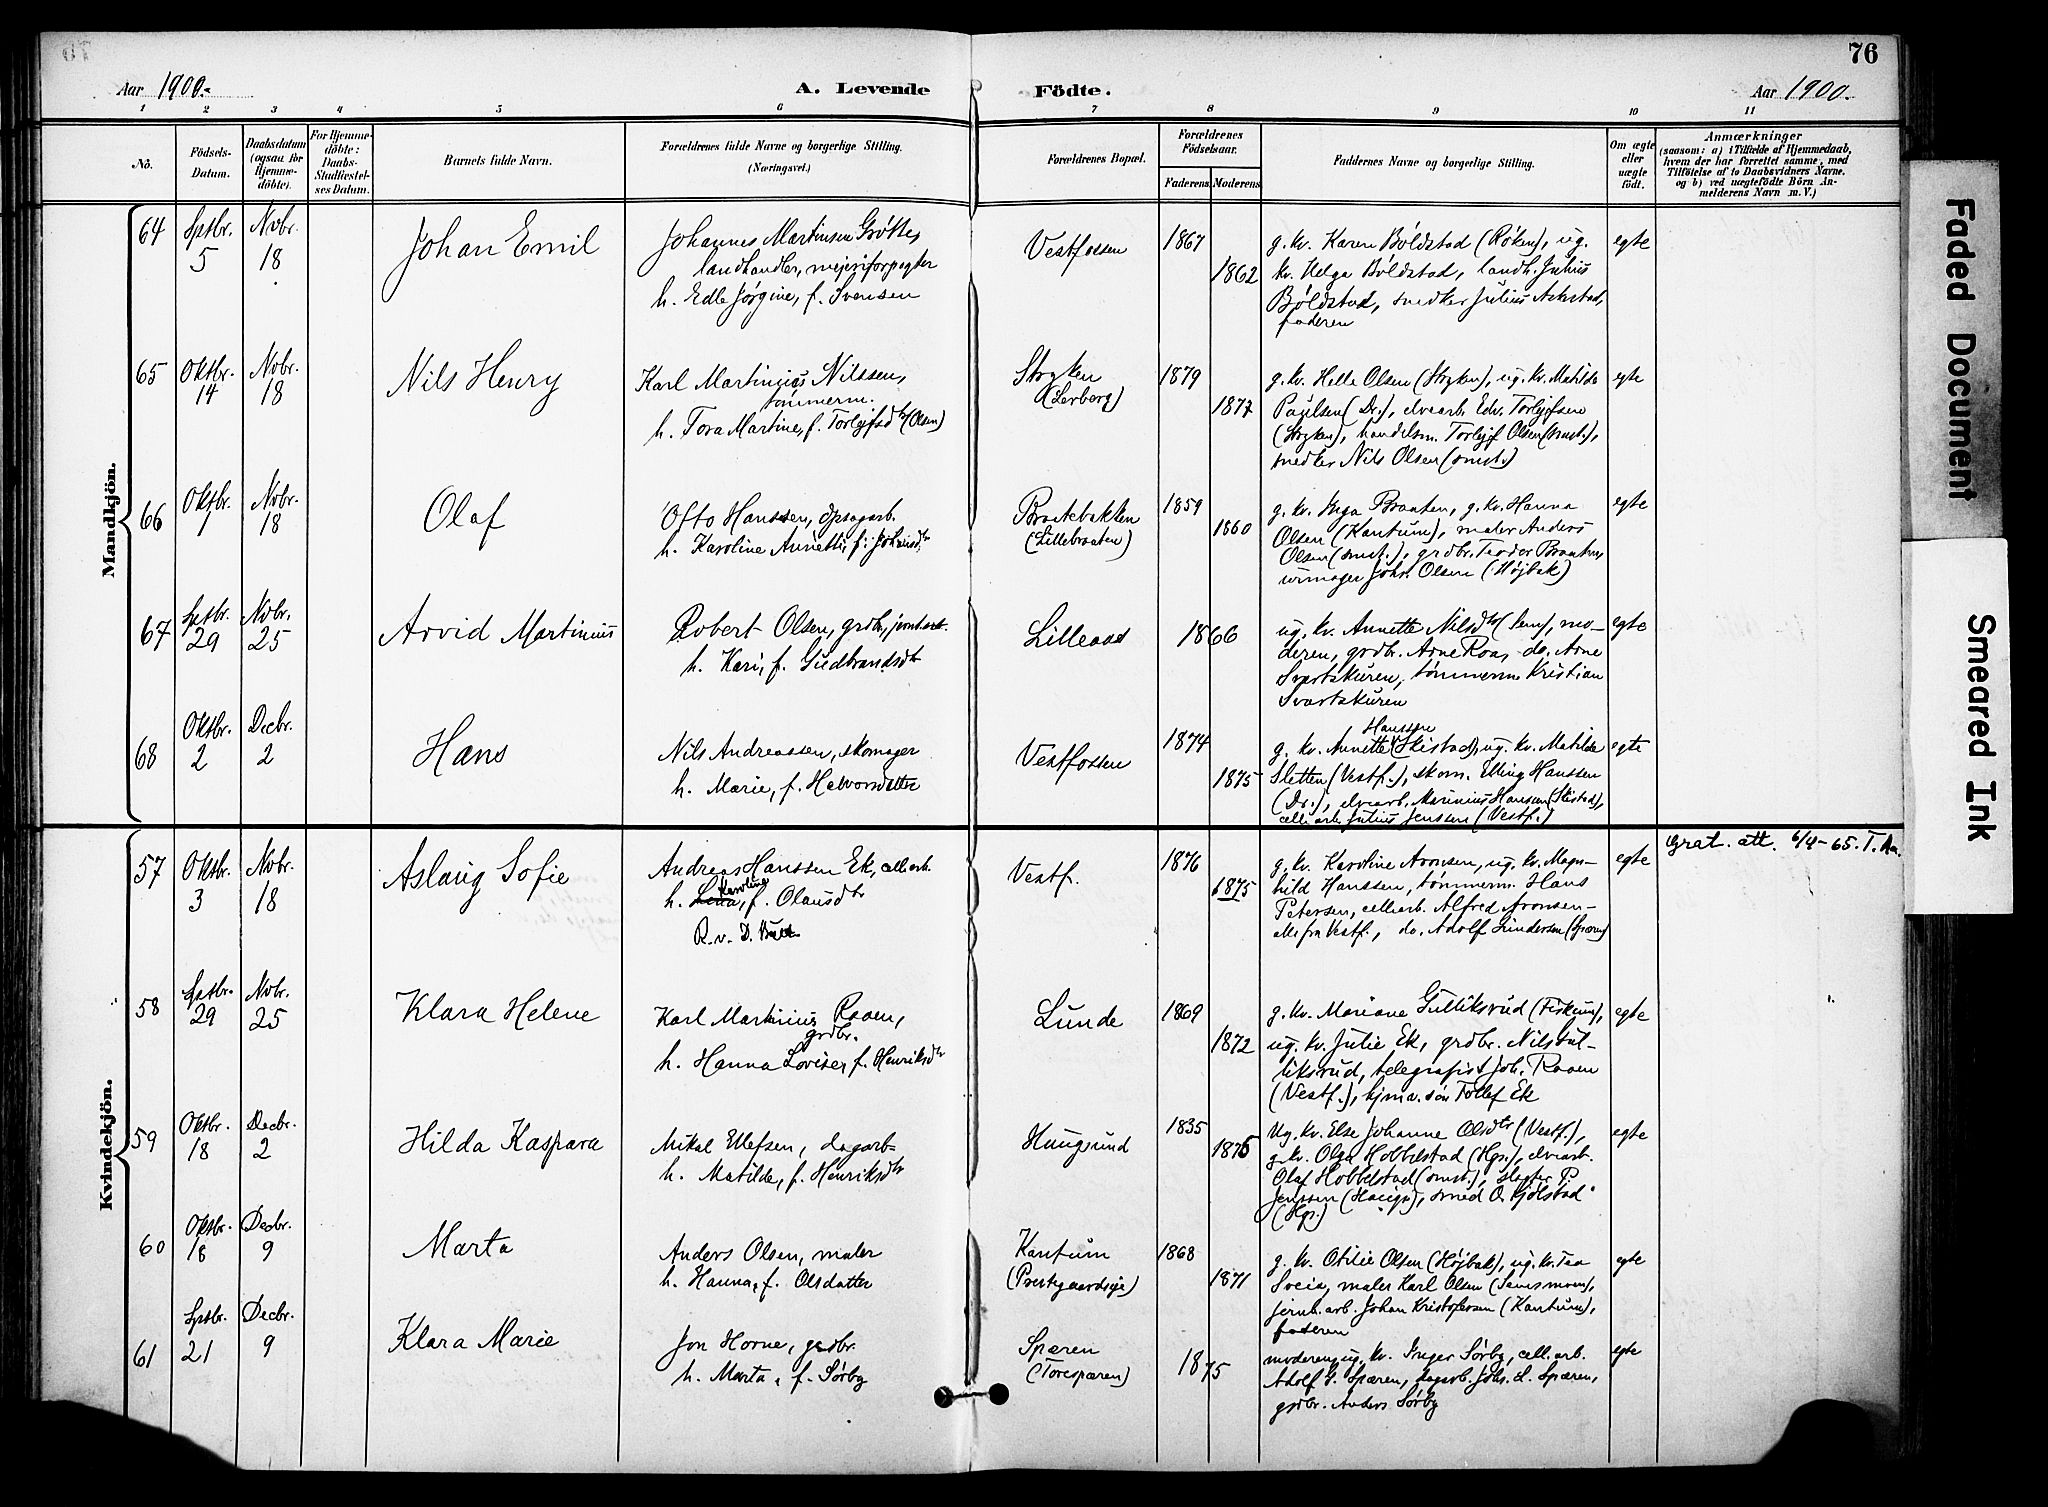 76
Aar 1900.
A. Levende Födte.
Aar 1900.
1 2 3 4 5 6 7 8 9 10 11
No.
Födsels-
Datum.
Daabsdatum
(ogsaa for
Hjemme-
döbte).
For Hjemme-
döbte:
Daabs-
Stadfæstel-
ses Datum.
Barnets fulde Navn.
Forældrenes fulde Navne og borgerlige Stilling.
(Næringsvei.)
Forældrenes Bopæl.
Forældrenes
Födselsaar.
Faderens. Moderens.
Faddernes Navne og borgerlige Stilling.
Om ægte
eller
uægte
födt.
Anmærkninger
(saasom: a) i Tilfælde af Hjemmedaab,
hvem der har forrettet samme, med
Tilföielse af to Daabsvidners Navne.
og b) ved uægtefödte Börn An-
melderens Navn m. V.)
Mandkjön.
64
Sptbr.
5
Novbr.
18
Johan Emil
Johannes Martinsen Grøtte,
landhandler, mejeriforpagter
h. Edle Jørgine, f. Svensen
Vestfossen
1867
1862
g. kv. Karen Bóldstad (Røken), ug.
kv. Helga Bóldstad, landh. Julius
Bóldstad, snedker Julius
faderen
egte
65
Oktbr.
14
Novbr.
18
Nils Henry
Karl Martinius Nilssen,
tømmerm.
h. Tora Martine, f. Torlejfsdtr (Olsen)
Stryken
(Lerberg)
1879
1877
g. kv. Helle Olsen (Stryken), ug. kv. Matilde
Paulsen (Dr.), elvearb. Edv. Torlejfsen
(Stryken), handelsm. Torlejf Olsen (smst.),
snedker Nils Olsen (smst.)
egte
66
Oktbr.
1
Nvbr.
18
Olaf
Otto Hanssen, opsagarb.
h. Karoline Annette, f. Johansdtr
Braatebakken
(Lillebraaten)
1859
1860
g. kv. Inga Braaten, g. kv. Hanna
Olsen (Kantum), maler Anders
Olsen (smst.), grdbr. Teodor Braaten,
urmager Johs. Olsen (Højbak)
egte
67
Sptbr.
29
Nvbr.
25
Arvid Martinius
Robert Olsen, grdbr,
h. Kari, f. Gudbrandsdtr
Lilleaas
1866
ug. kv. Annette Nilsdtr (Sem), mo-
deren, grdbr. Arne Roa, do. Arne
Svartskuren, tømmerm. Kristian
Svartskuren
egte
68
Oktbr.
2
Decbr.
2
Hans
Nils Andreassen, skomager
h. Marie, f. Halvorsdatter
Vestfossen
1874
1875
Hanssen
g. kv. Annette (Skistad), ug. kv. Matilde
Sletten (Vestf.), skom. Elling Hanssen
(Dr.), elvearb. Marinius Hansen (Skistad),
cellarb. Julius Jenssen (Vestf.)
egte
Kvindekjön.
57
Oktbr.
3
Novbr.
18
Aslaug Sofie
Andreas Hanssen Ek, cell.arb.
Karoline
h. Lena, f. Olausdtr
Vestf.
1876
1875
g. kv. Karoline Aronsen, ug. kv. Magn-
hild Hanssen, tømmerm. Hans
Petersen, cellearb. Alfred Aronsen -
alle fra Vestf., do. Adolf Gundersen (Spæren)
egte
Grat. att. 6/4-65. T. Aa.
58
Sptbr.
29
Nvbr.
25
Klara Helene
Karl Martinius Raaen,
grdbr.
h. Hanna Lovise, f. Henriksdtr
Lunde
1869
1872
g. kv. Mariane Gulliksrud (Fiskum),
ug. kv. Julie Ek, grdbr. Nils Gul-
liksrud, telegrafist Joh. Raaen
(Vestf.), hjmv. søn Tollef Ek
egte
59
Oktbr.
18
Decbr.
2
Hilda Kaspara
Mikal Ellefsen, dagarb.
h. Matilde, f. Henriksdtr
Haugsund
1835
1875
Ug. kv. Else Johanne Olsdtr (Vestf.),
g. kv. Olga Hobbelstad (Hgs.), elvearb.
Olaf Hobbelstad (smst.), slagter P.
Jenssen (Haugs.), smed O. Kjølstad
(Hgs.)
egte
60
Oktbr.
18
Decbr.
9
Marta
Anders Olsen, maler
h. Hanna, f. Olsdatter
Kantum
(Prestgaardseje)
1868
1871
g. kv. Otilie Olsen (Højbak), ug. kv. Tea
Sveia, maler Karl Olsen (Semsmoen),
jernb. arb. Johan Kristofersen (Kantum),
faderen
egte
61
Sptbr.
21
Decbr.
9
Klara Marie
Jon Horne, grdbr.
h. Marta, f. Sørby
Spæren
(Torespæren)
1875
moderen, ug. kv. Inger Sørby, cell. arb.
Adolf G. Spæren, dagarb. Johs. L. Spæren,
grdbr. Anders Sørby
egte
Faded Document
Smeared Ink